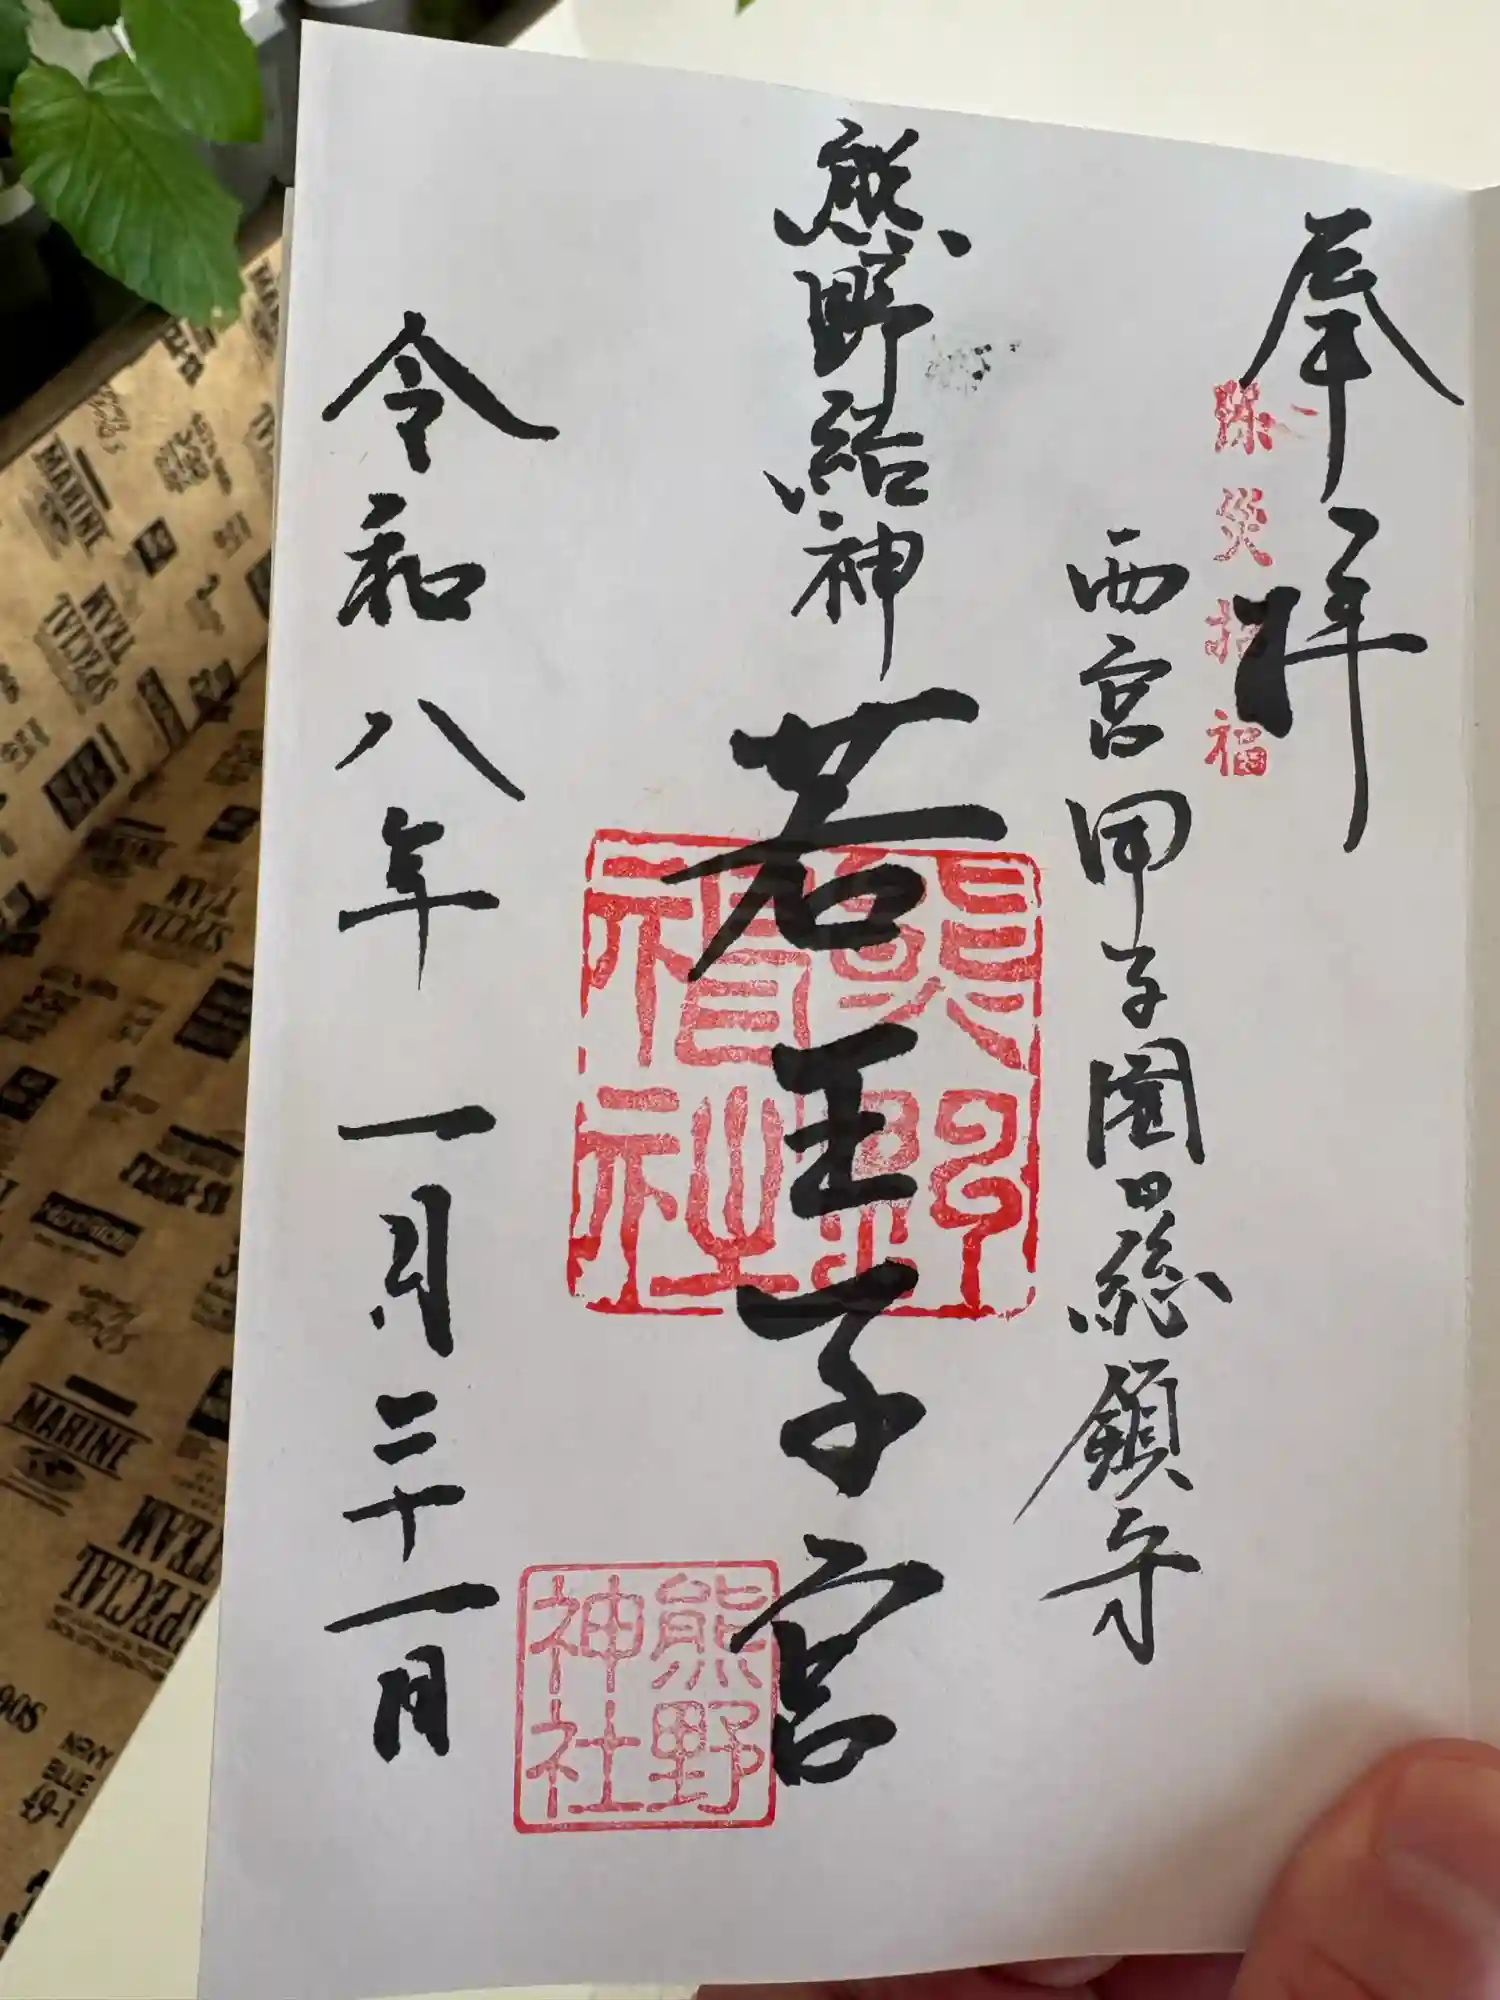 奉拝
除災招福
西宮甲子園口総鎮守
熊野結神
若王子宮
熊野神社
熊野神社
令和八年一月三十一日
MARINE
SPECIAL
TEAM
MARINE
SPECIAL
TEAM
NAVY
BLUE
49-1